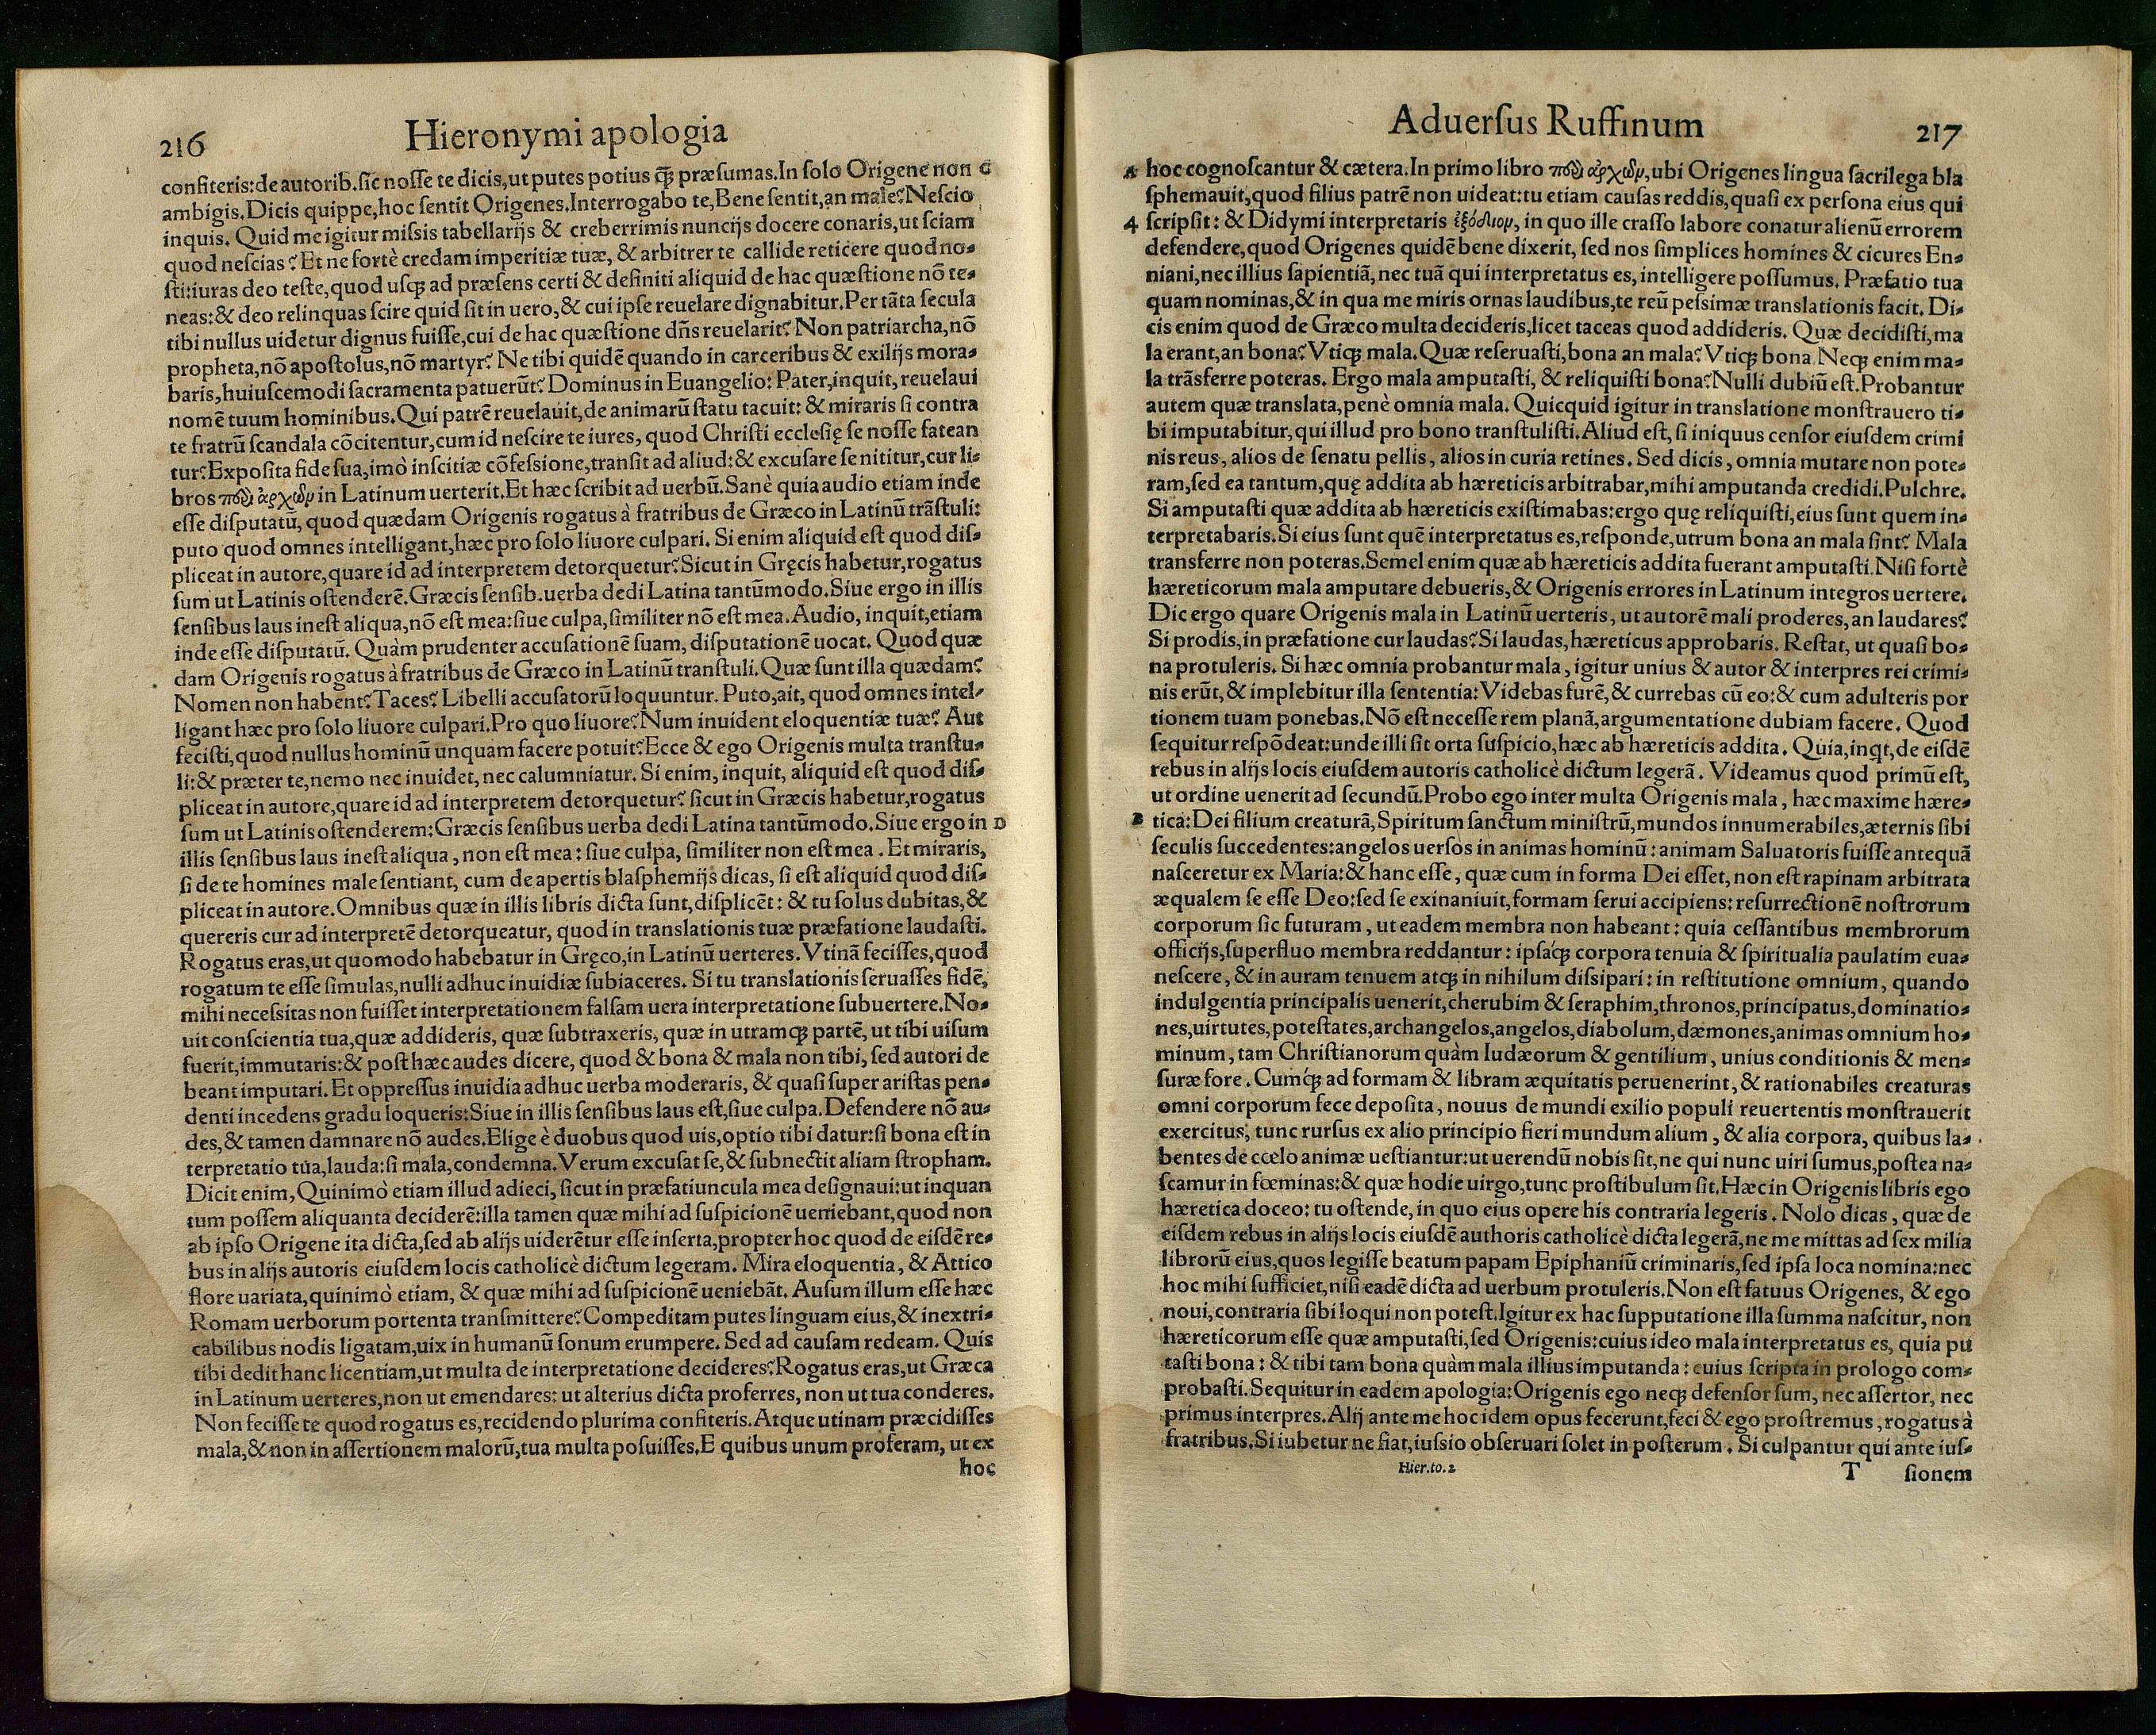 216
Hieronymi apologia
confiteris: de autorib. sic nosse te dicis, ut putes potius q̃ꝫ præsumas. In solo Origene non C
ambigis. Dicis quippe, hoc sentit Origenes. Interrogabo te, Bene sentit, an male? Nescio
inquis. Quid me igitur missis tabellarijs & creberrimis nuncijs docere conaris, ut sciam
quod nescias? Et ne fortè credam imperitiæ tuæ, & arbitrer te callide reticere quod no-
sti: iuras deo teste, quod usqꝫ ad præsens certi & definiti aliquid de hac quæstione nõ te-
neas: & deo relinquas scire quid sit in uero, & cui ipse reuelare dignabitur. Per tãta secula
tibi nullus uidetur dignus fuisse, cui de hac quæstione dñs reuelarit? Non patriarcha, nõ
propheta, nõ apostolus, nõ martyr? Ne tibi quidẽ quando in carceribus & exilijs mora-
baris, huiuscemodi sacramenta patuerũt? Dominus in Euangelio: Pater, inquit, reuelaui
nomẽ tuum hominibus. Qui patrẽ reuelauit, de animarũ statu tacuit: & miraris si contra
te fratrũ scandala cõcitentur, cum id nescire te iures, quod Christi ecclesię se nosse fatean
tur? Exposita fide sua, imò inscitiæ cõfessione, transit ad aliud: & excusare se nititur, cur li-
bros περὶ ἀρχῶν in Latinum uerterit. Et hæc scribit ad uerbũ. Sanè quia audio etiam inde
esse disputatũ, quod quædam Origenis rogatus à fratribus de Græco in Latinũ trãstuli:
puto quod omnes intelligant, hæc pro solo liuore culpari. Si enim aliquid est quod dis-
pliceat in autore, quare id ad interpretem detorquetur? Sicut in Gręcis habetur, rogatus
sum ut Latinis ostenderẽ. Græcis sensib. uerba dedi Latina tantũmodo. Siue ergo in illis
sensibus laus inest aliqua, nõ est mea: siue culpa, similiter nõ est mea. Audio, inquit, etiam
inde esse disputatũ. Quàm prudenter accusationẽ suam, disputationẽ uocat. Quod quæ
dam Origenis rogatus à fratribus de Græco in Latinũ transtuli. Quæ sunt illa quædam?
Nomen non habent? Taces? Libelli accusatorũ loquuntur. Puto, ait, quod omnes intel-
ligant hæc pro solo liuore culpari. Pro quo liuore? Num inuident eloquentiæ tuæ? Aut
fecisti, quod nullus hominũ unquam facere potuit? Ecce & ego Origenis multa transtu-
li: & præter te, nemo nec inuidet, nec calumniatur. Si enim, inquit, aliquid est quod dis-
pliceat in autore, quare id ad interpretem detorquetur? sicut in Græcis habetur, rogatus
sum ut Latinis ostenderem: Græcis sensibus uerba dedi Latina tantũmodo. Siue ergo in D
illis sensibus laus inest aliqua, non est mea: siue culpa, similiter non est mea. Et miraris,
si de te homines male sentiant, cum de apertis blasphemijs dicas, si est aliquid quod dis-
pliceat in autore. Omnibus quæ in illis libris dicta sunt, displicẽt: & tu solus dubitas, &
quereris cur ad interpretẽ detorqueatur, quod in translationis tuæ præfatione laudasti.
Rogatus eras, ut quomodo habebatur in Gręco, in Latinũ uerteres. Vtinã fecisses, quod
rogatum te esse simulas, nulli adhuc inuidiæ subiaceres. Si tu translationis seruasses fidẽ,
mihi necessitas non fuisset interpretationem falsam uera interpretatione subuertere. No-
uit conscientia tua, quæ addideris, quæ subtraxeris, quæ in utramqꝫ partẽ, ut tibi uisum
fuerit, immutaris: & post hæc audes dicere, quod & bona & mala non tibi, sed autori de
beant imputari. Et oppressus inuidia adhuc uerba moderaris, & quasi super aristas pen-
denti incedens gradu loqueris: Siue in illis sensibus laus est, siue culpa. Defendere nõ au-
des, & tamen damnare nõ audes. Elige è duobus quod uis, optio tibi datur: si bona est in
terpretatio tua, lauda: si mala, condemna. Verum excusat se, & subnectit aliam stropham.
Dicit enim, Quinimò etiam illud adieci, sicut in præfatiuncula mea designaui: ut inquan
tum possem aliquanta deciderẽ: illa tamen quæ mihi ad suspicionẽ ueniebant, quod non
ab ipso Origene ita dicta, sed ab alijs uiderẽtur esse inserta, propter hoc quod de eisdẽ re-
bus in alijs autoris eiusdem locis catholicè dictum legeram. Mira eloquentia, & Attico
flore uariata, quinimò etiam, & quæ mihi ad suspicionẽ ueniebãt. Ausum illum esse hæc
Romam uerborum portenta transmittere? Compeditam putes linguam eius, & inextri-
cabilibus nodis ligatam, uix in humanũ sonum erumpere. Sed ad causam redeam. Quis
tibi dedit hanc licentiam, ut multa de interpretatione decideres? Rogatus eras, ut Græca
in Latinum uerteres, non ut emendares: ut alterius dicta proferres, non ut tua conderes.
Non fecisse te quod rogatus es, recidendo plurima confiteris. Atque utinam præcidisses
mala, & non in assertionem malorũ, tua multa posuisses. E quibus unum proferam, ut ex
hoc
Aduersus Ruffinum
217
A hoc cognoscantur & cætera. In primo libro περὶ ἀρχῶν, ubi Origenes lingua sacrilega bla
sphemauit, quod filius patrẽ non uideat: tu etiam causas reddis, quasi ex persona eius qui
4 scripsit: & Didymi interpretaris ἐξόδιον, in quo ille crasso labore conatur alienũ errorem
defendere, quod Origenes quidẽ bene dixerit, sed nos simplices homines & cicures En-
niani, nec illius sapientiã, nec tuã qui interpretatus es, intelligere possumus. Præfatio tua
quam nominas, & in qua me miris ornas laudibus, te reũ pessimæ translationis facit. Di-
cis enim quod de Græco multa decideris, licet taceas quod addideris. Quæ decidisti, ma
la erant, an bona? Vtiqꝫ mala. Quæ reseruasti, bona an mala? Vtiqꝫ bona. Neqꝫ enim ma-
la trãsferre poteras. Ergo mala amputasti, & reliquisti bona? Nulli dubiũ est. Probantur
autem quæ translata, penè omnia mala. Quicquid igitur in translatione monstrauero ti-
bi imputabitur, qui illud pro bono transtulisti. Aliud est, si iniquus censor eiusdem crimi
nis reus, alios de senatu pellis, alios in curia retines. Sed dicis, omnia mutare non pote-
ram, sed ea tantum, quę addita ab hæreticis arbitrabar, mihi amputanda credidi. Pulchre.
Si amputasti quæ addita ab hæreticis existimabas: ergo quę reliquisti, eius sunt quem in-
terpretabaris. Si eius sunt quẽ interpretatus es, responde, utrum bona an mala sint? Mala
transferre non poteras. Semel enim quæ ab hæreticis addita fuerant amputasti. Nisi fortè
hæreticorum mala amputare debueris, & Origenis errores in Latinum integros uertere.
Dic ergo quare Origenis mala in Latinũ uerteris, ut autorẽ mali proderes, an laudares?
Si prodis, in præfatione cur laudas? Si laudas, hæreticus approbaris. Restat, ut quasi bo-
na protuleris. Si hæc omnia probantur mala, igitur unius & autor & interpres rei crimi-
nis erũt, & implebitur illa sententia: Videbas furẽ, & currebas cũ eo: & cum adulteris por
tionem tuam ponebas. Nõ est necesse rem planã, argumentatione dubiam facere. Quod
sequitur respõdeat: unde illi sit orta suspicio, hæc ab hæreticis addita. Quia, inqt, de eisdẽ
rebus in alijs locis eiusdem autoris catholicè dictum legerã. Videamus quod primũ est,
ut ordine uenerit ad secundũ. Probo ego inter multa Origenis mala, hæc maxime hære-
B tica: Dei filium creaturã, Spiritum sanctum ministrũ, mundos innumerabiles, æternis sibi
seculis succedentes: angelos uersos in animas hominũ: animam Saluatoris fuisse antequã
nasceretur ex Maria: & hanc esse, quæ cum in forma Dei esset, non est rapinam arbitrata
æqualem se esse Deo: sed se exinaniuit, formam serui accipiens: resurrectionẽ nostrorum
corporum sic futuram, ut eadem membra non habeant: quia cessantibus membrorum
officijs, superfluo membra reddantur: ipsáqꝫ corpora tenuia & spiritualia paulatim eua-
nescere, & in auram tenuem atqꝫ in nihilum dissipari: in restitutione omnium, quando
indulgentia principalis uenerit, cherubim & seraphim, thronos, principatus, dominatio-
nes, uirtutes, potestates, archangelos, angelos, diabolum, dæmones, animas omnium ho-
minum, tam Christianorum quàm Iudæorum & gentilium, unius conditionis & men-
suræ fore. Cumq́ꝫ ad formam & libram æquitatis peruenerint, & rationabiles creaturas
omni corporum fece deposita, nouus de mundi exilio populi reuertentis monstrauerit
exercitus, tunc rursus ex alio principio fieri mundum alium, & alia corpora, quibus la-
bentes de cœlo animæ uestiantur: ut uerendũ nobis sit, ne qui nunc uiri sumus, postea na-
scamur in fœminas: & quæ hodie uirgo, tunc prostibulum sit. Hæc in Origenis libris ego
hæretica doceo: tu ostende, in quo eius opere his contraria legeris. Nolo dicas, quæ de
eisdem rebus in alijs locis eiusdẽ authoris catholicè dicta legerã, ne me mittas ad sex milia
librorũ eius, quos legisse beatum papam Epiphaniũ criminaris, sed ipsa loca nomina: nec
hoc mihi sufficiet, nisi eadẽ dicta ad uerbum protuleris. Non est fatuus Origenes, & ego
noui, contraria sibi loqui non potest. Igitur ex hac supputatione illa summa nascitur, non
hæreticorum esse quæ amputasti, sed Origenis: cuius ideo mala interpretatus es, quia pu
tasti bona: & tibi tam bona quàm mala illius imputanda: cuius scripta in prologo com-
probasti. Sequitur in eadem apologia: Origenis ego neqꝫ defensor sum, nec assertor, nec
primus interpres. Alij ante me hoc idem opus fecerunt, feci & ego prostremus, rogatus à
fratribus. Si iubetur ne fiat, iussio obseruari solet in posterum. Si culpantur qui ante ius-
Hier. to. 2 T sionem